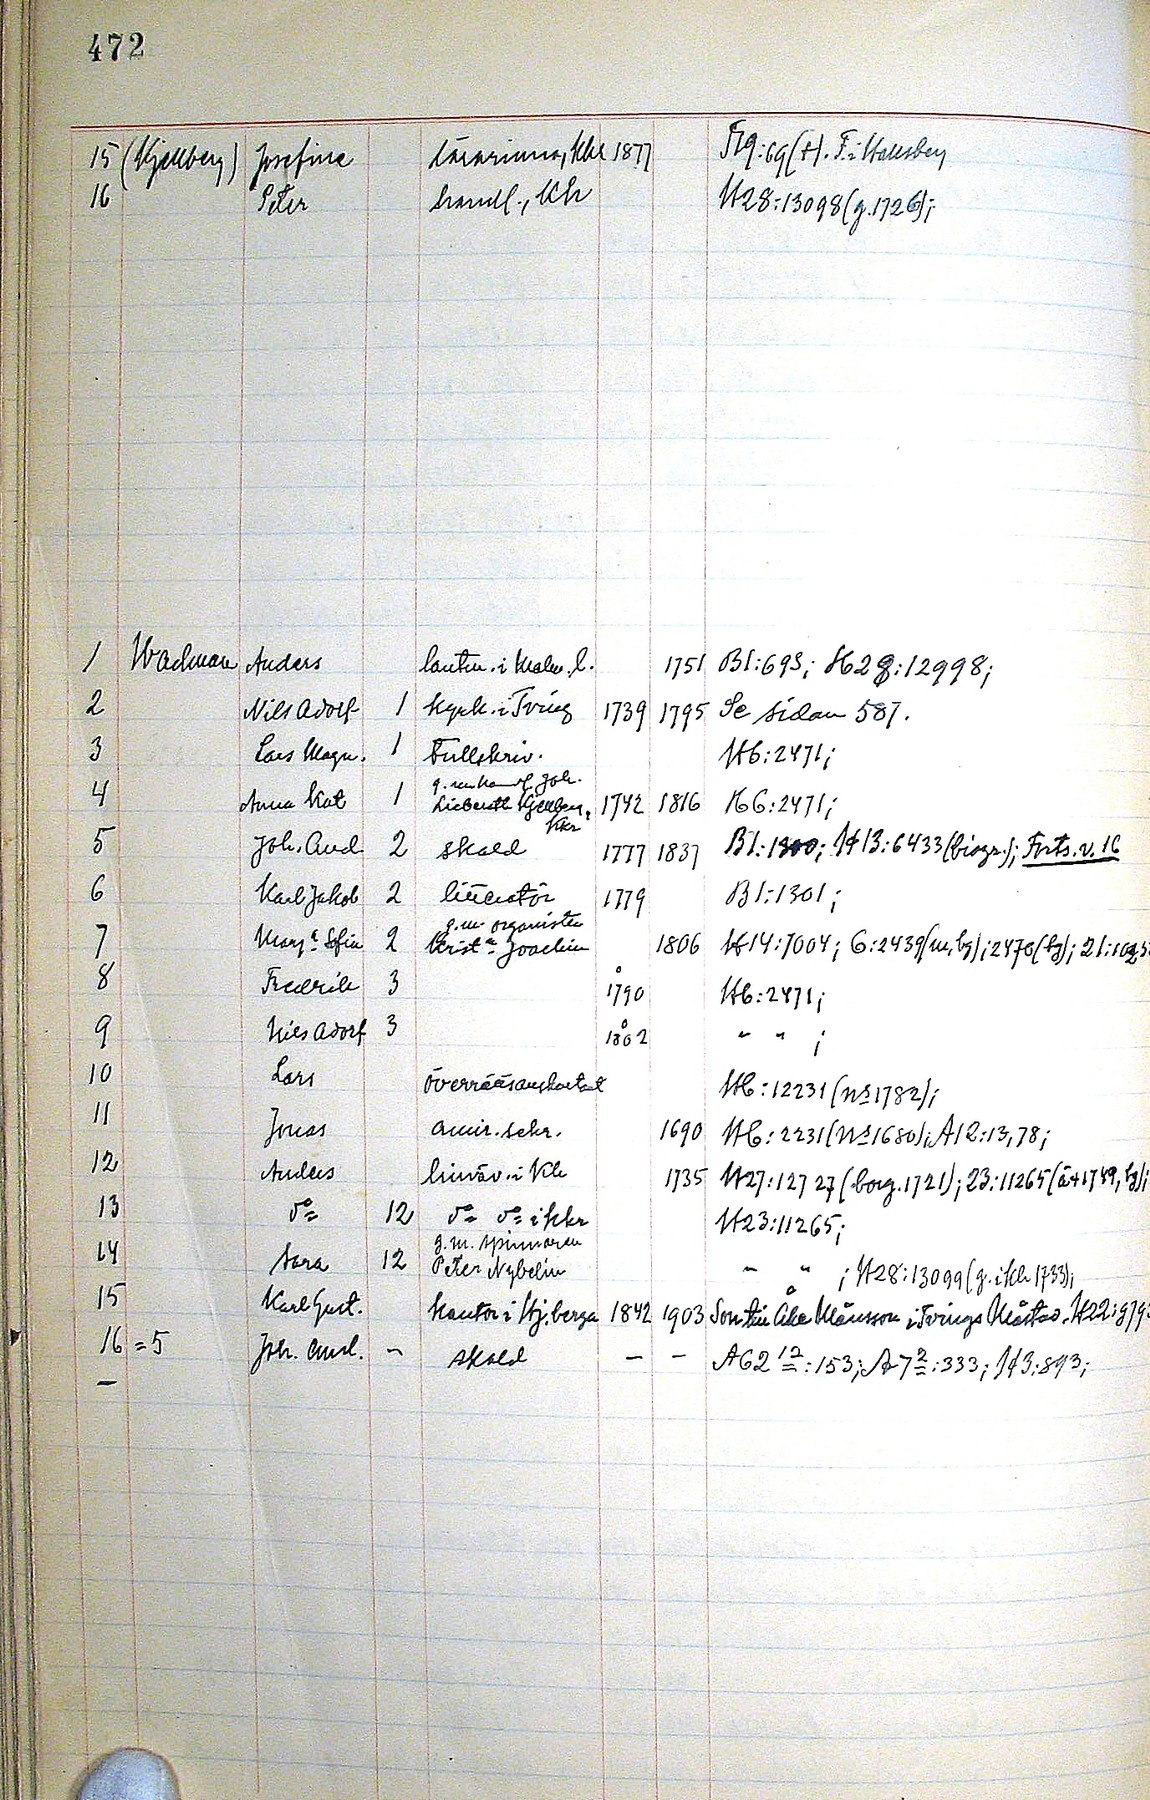 472
15 (Kjellberg) Josefine lärarinna, Kkr 1877 F19:69(+). F. i Hallsberg
16 Peter handl., Kh H28:13098(g.1726);
1 Wadman Anders lantm. i Malm. l. 1751 B1:693; H28:12998;
2 Nils Adolf 1 kyrk. i Tving 1739 1795 Se sidan 587.
3 Lars Magn. 1 Tullskriv. H6:2471;
g.m. handl. Joh.
4 Anna Kat 1 Kjellberg, 1742 1816 H6:2471;
Kkr
5 Joh. And 2 skald 1777 1837 B1:1300; H13:6433(biogr.); Forts. v. 16
6 Karl Jakob 2 litteratör 1779 B1:1301;
g.m. organisten
7 Marg:a Sofia 2 Krist:n Joachim 1806 H14:7004; 6:2439(m, bg); 2470(bg);
8 Fredrik 3 1790 H6:2471;
9 Nils Adolf 3 1802 " " ;
10 Lars H6:12231(nº1782);
11 Jonas amir. sekr. 1690 H6:2231(nº1680); A12:13,78;
12 Anders linväv. i Kh 1735 H27:12727(borg.1721); 23:11265(ä+1749, bg);
13 dº 12 dº dº i Kkr H23:11265;
g.m. spinnaren
14 Sara 12 Peter Nybelin " " ; H28:13099(g. i Kh 1733);
15 Karl Gust. kantor i Hj. berga 1842 1903 Son till Åke Månsson i Tvings Måstad. H22:
16 =5 Joh. And. – skald – – A62 12:153; A7 2:333; H3:893;
–